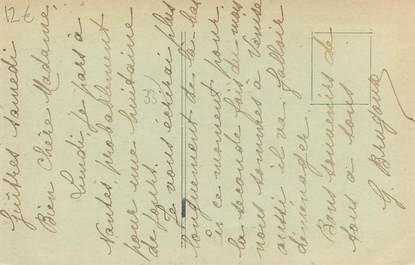 12 €
Guîtres samedi
Bien chère Madame,
Lundi je pars à
Nantes probablement
pour une huitaine
de jours.
Je vous écrirai plus
longuement de là-bas
ce moment pour
la seconde fois du mois
nous sommes à Venise
aussi il va falloir
déménager.
Bons souvenirs de
tous à tous
G. Brugens